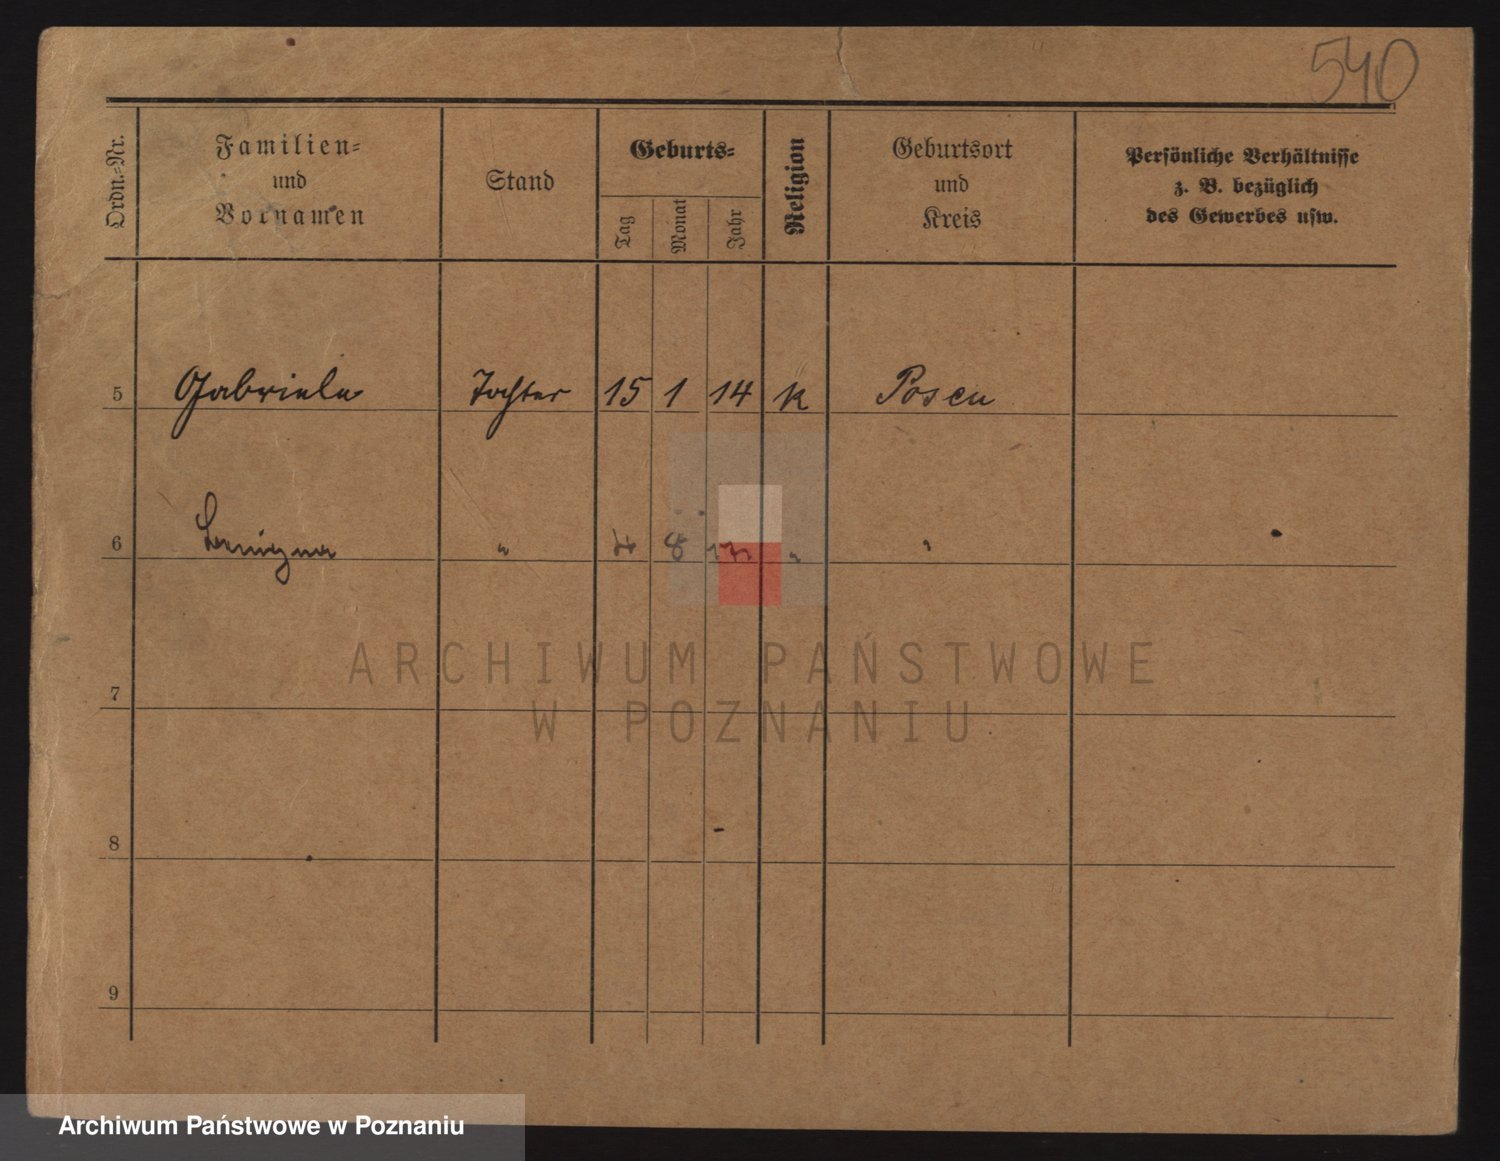 540
Ordn.-Nr.
Familien-
und
Vornamen
Stand
Geburts-
Tag
Monat
Jahr
Religion
Geburtsort
und
Kreis
Persönliche Verhältnisse
z. B. bezüglich
des Gewerbes usw.
5 Gabriele Tochter 15 1 14 k Posen
6 " 4 8 17 " "
ARCHIWUM PAŃSTWOWE
W POZNANIU
7
8
9
Archiwum Państwowe w Poznaniu